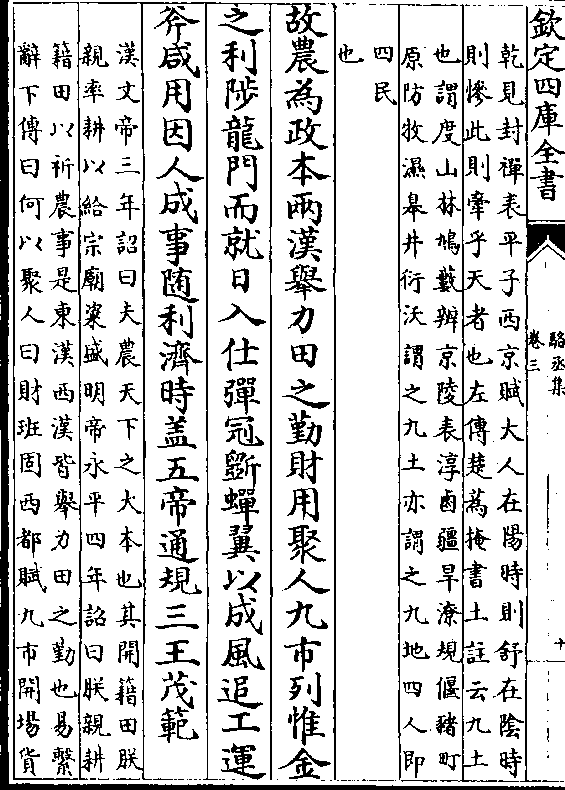 欽定四庫全書
駱丞集
卷三
十
乾見封禪表平子西京賦大人在陽時則舒在陰時
則慘此則牽乎天者也左傳楚蒍掩書土註云九土
也謂度山林鳩藪辨京陵表淳鹵疆旱潦規偃豬町
原防牧濕皋井衍沃謂之九土亦謂之九地四人即
四民
也
故農為政本兩漢舉力田之勤財用聚人九市列惟金
之利陟龍門而就日入仕彈冠斵蟬翼以成風追工運
斧咸用因人成事随利濟時盖五帝通規三王茂範
漢文帝三年詔曰夫農天下之大本也其開籍田朕
親率耕以給宗廟粢盛明帝永平四年詔曰朕親耕
籍田以祈農事是東漢西漢皆舉力田之勤也易繫
辭下傳曰何以聚人曰財班固西都賦九市開場貨